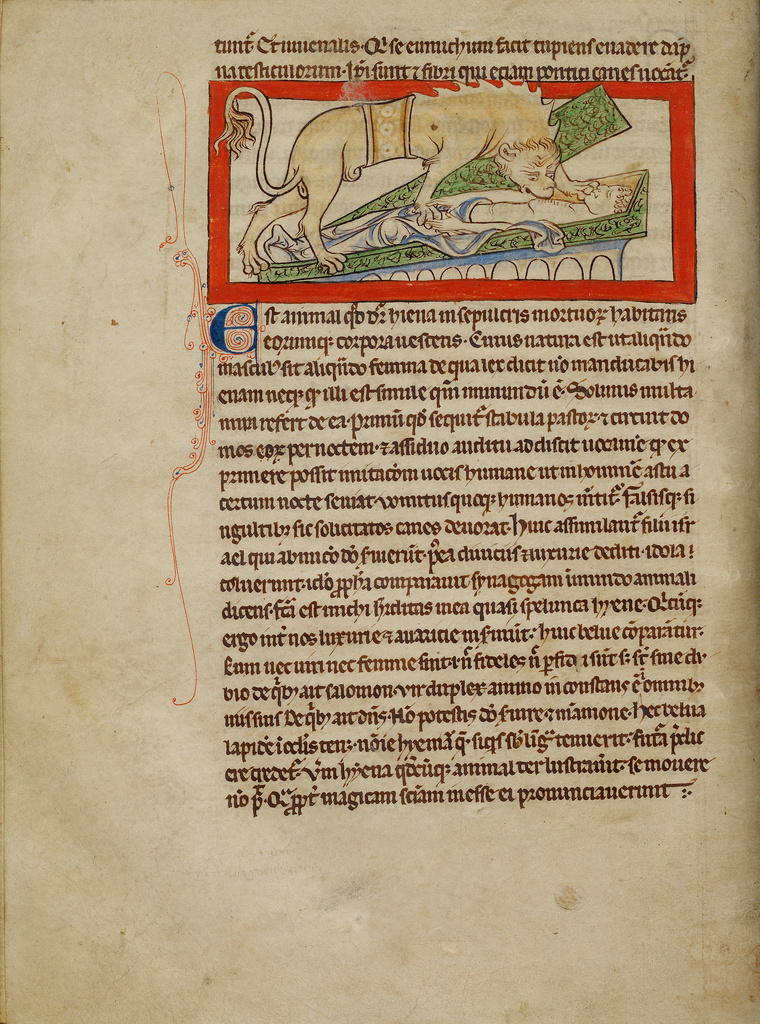 tunt᷑. Et iuuenalis. Qͥ se eunuchum facit cupiens euadere dāp
na testiculorum. Ip̄i sunt ⁊ fibri qui etiam pontici canes uocāt᷑.
Est animal qd̓ dr̄ hiena in sepulcris mortuoꝝ habitans
eorumqꝫ corpora uescens. Cuius natura est ut aliqn̄do
masculꝰ sit aliqn̄do femina de qua lex dicit nō manducabis hi
enam neqꝫ qͥ illi est simile qm̄ inmundū ē. Solinus multa
mira refert de ea. Primū qd̓ sequit᷑ stabula pastoꝝ ⁊ circuit do
mos eoꝝ per noctem. ⁊ assiduo auditu addiscit uocamē qd̓ ex
primere possit imitacōm uocis humane ut in hominē astu a
certum nocte seuiat. Vomitus quoqꝫ humanos mētit᷑. falsisqꝫ si
ngultibꝫ sic solicitatos canes deuorat. huic assimilant᷑ filii isr̄
ael qui ab inicō dō s̓uierūt. p̄ea diuiciis ⁊ luxurie dediti. idola
coluerunt. idō pp̄ha comparauit synagogam inmundo animali
dicens. fc̄a est michi h̓ditas mea quasi spelunca hyene. Qͥcūqꝫ
ergo int̓ nos luxurie ⁊ auaricie ins̓uiūt. huic belue cōparant᷑.
Cum nec uiri nec femine sint. i. n̄ fideles n̄ p̱fidi sūt s; st̄ sine du
bio de qͥbꝫ ait salomon. vir duplex animo inconstans ē oīnibꝫ
uiis suis De qͥbꝫ ait dn̄s. Nō potestis dō s̓uire ⁊ māmone. hec belua
lapidē ī oclis tenꝫ. nōīe hyeniā qͥ. siqͥs sb̓ līg᷑ tenuerit. futͣa p̄dic
ere credet᷑. Vm̄ hyena qd̓cūqꝫ animal ter lustrauit. se mouere
nō p̄. Qͣ pp̄t᷑ magicam sciam inesse ei pronunciauerunt